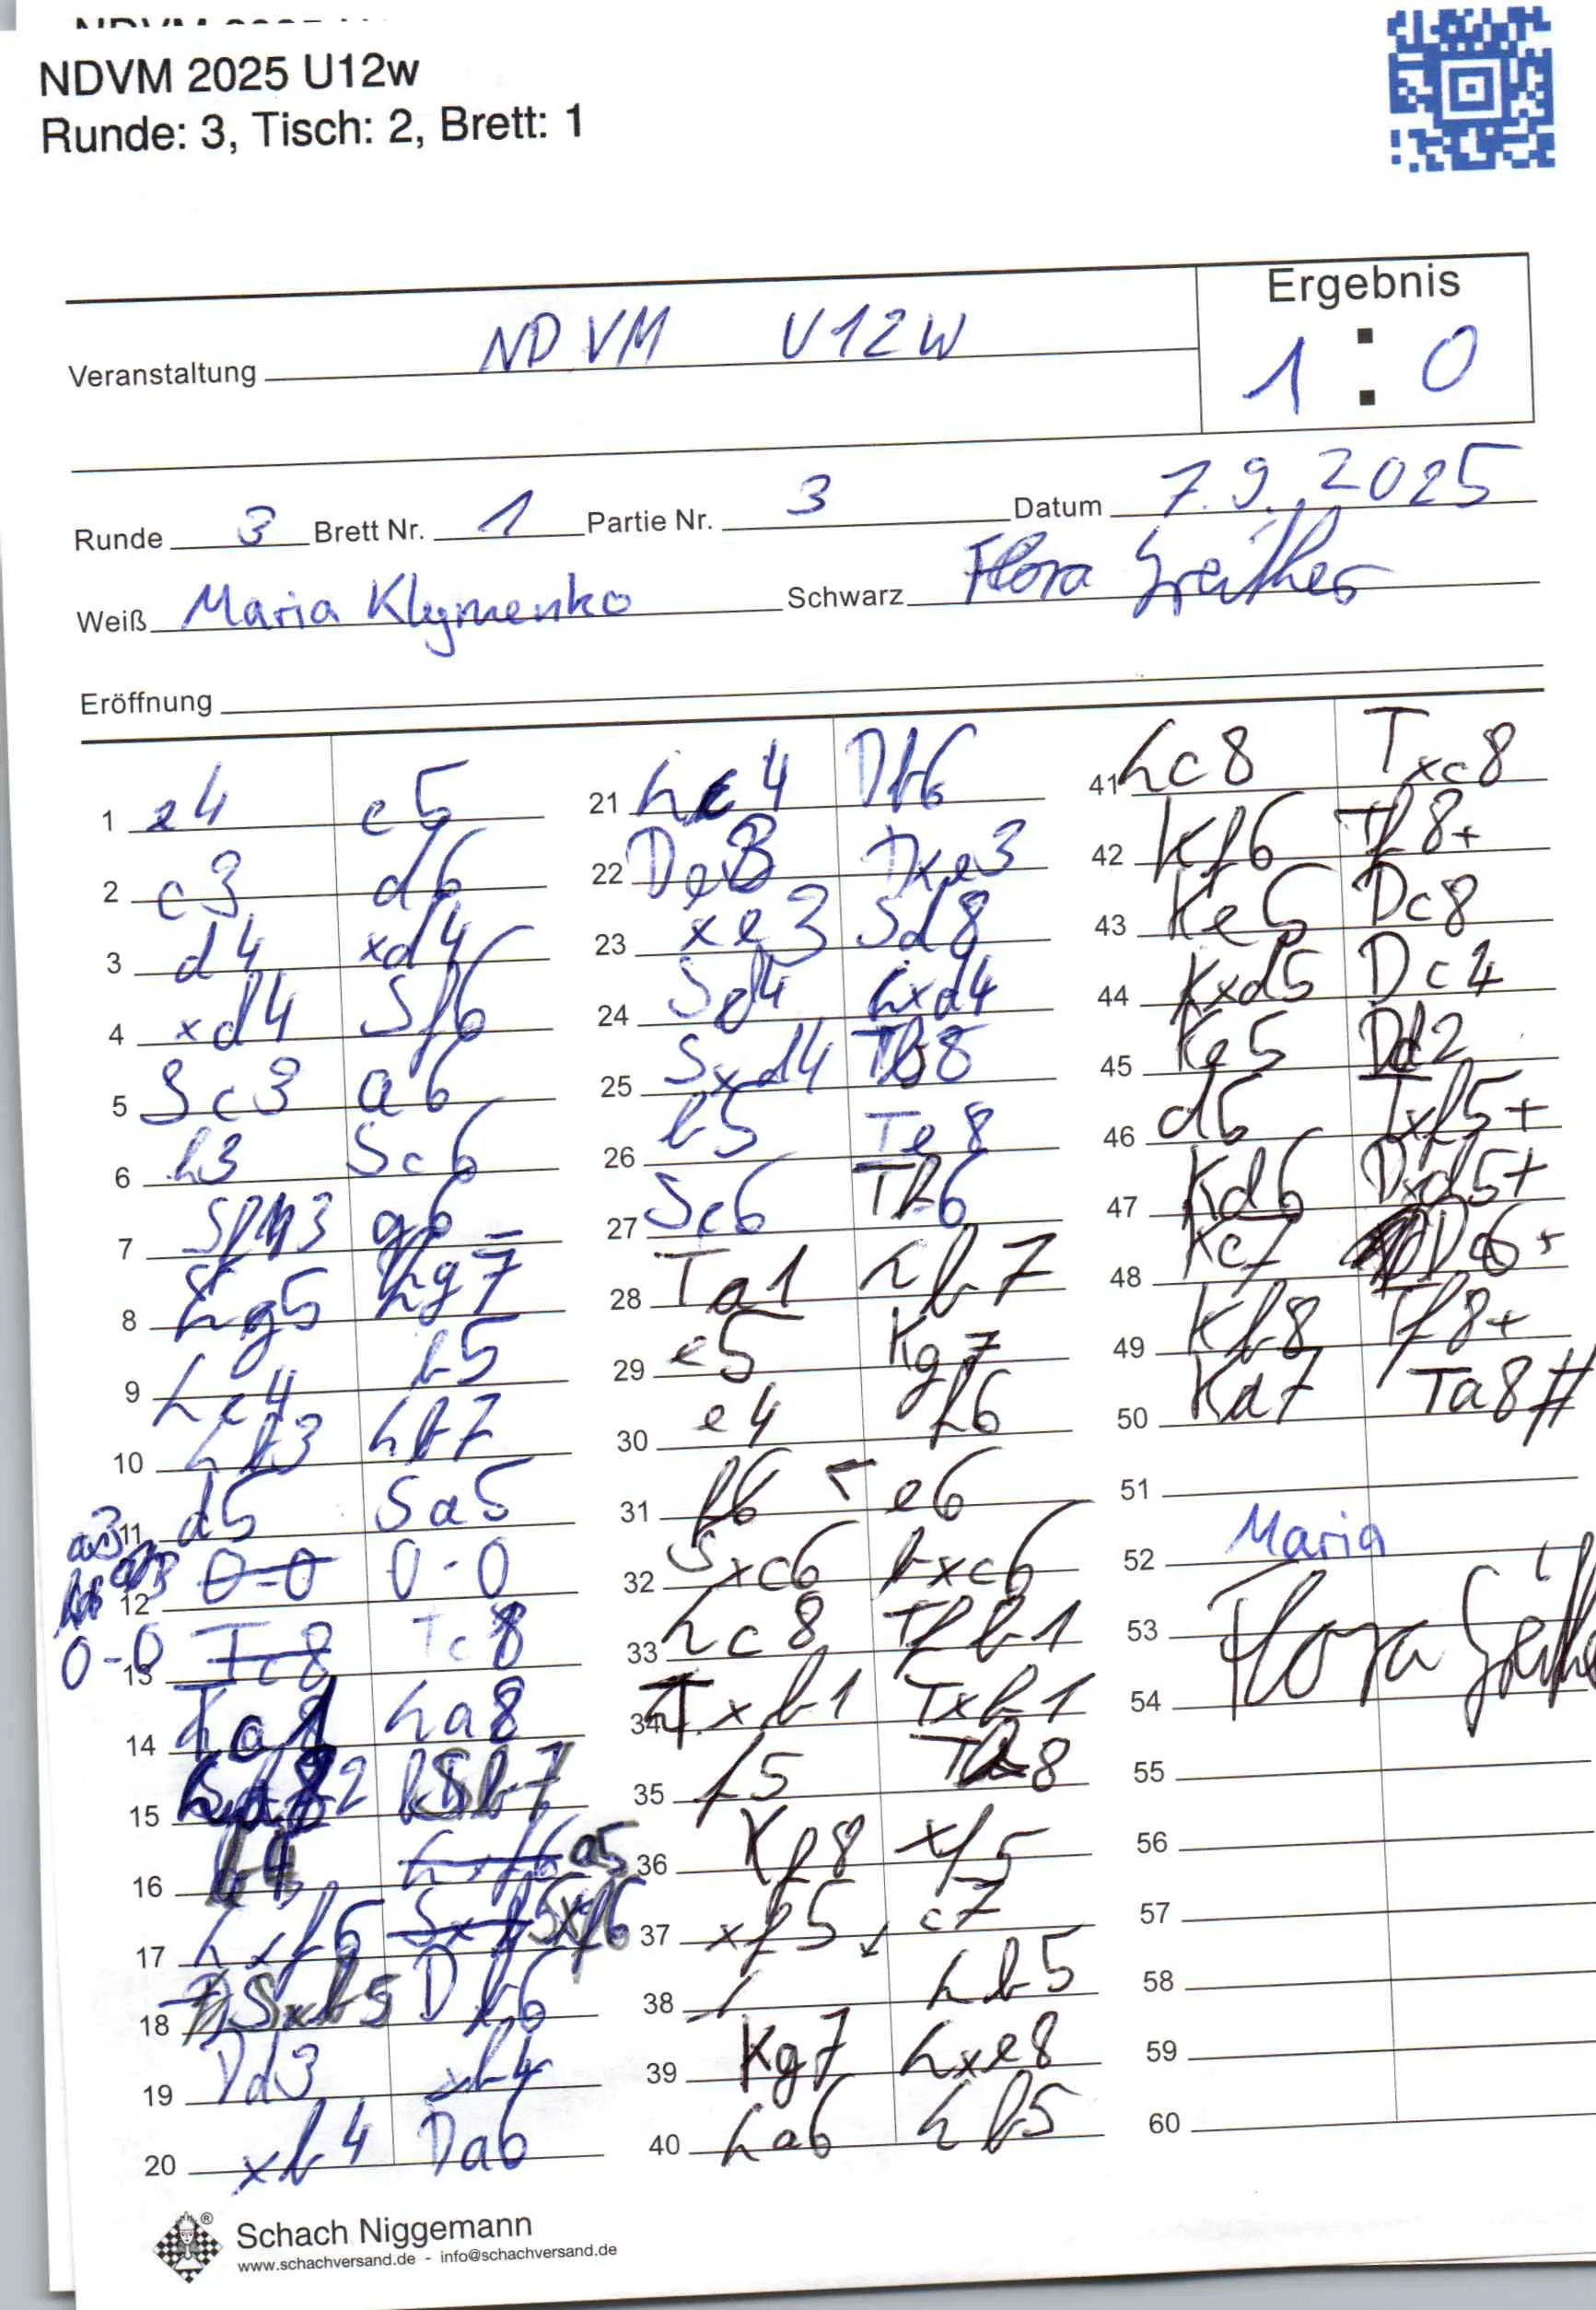 NDVM 2025 U12w
Runde: 3, Tisch: 2, Brett: 1
Ergebnis
Veranstaltung NDVM U12W
1 : 0
Runde 3 Brett Nr. 1 Partie Nr. 3 Datum 7.9.2025
Weiß Maria Klymenko Schwarz Flora
Eröffnung
1 e4 e5
2 c3 d6
3 d4 xd4
4 xd4 Sf6
5 Sc3 a6
6 h3 Sc6
7 Sf3 g6
8 Lg5 Lg7
9 Lc4 b5
10 Lb3 Lb7
11 a3 d5 Sa5
12 0-0 0-0
13 0-0 Tc8 Tc8
14 La8
15
16 b4 Lxf6 a5
17 Lxf6 Sxf6
18 Sxb5 Db6
19 Dd3 xb4
20 xb4 Da6
21 Lc4 Db6
22 De3 Dxe3
23 xe3 Sd8
24 Sd4 Lxd4
25 Sxd4 Tb8
26 b5 Te8
27 Sc6 Tb6
28 Ta1 Lb7
29 e5 Kg7
30 e4 f6
31 f6 e6
32 Sxc6 bxc6
33 Lc8 Tfb1
34 Txb1 Txb1
35 f5
36 Kf8 xf5
37 xf5 c7
38 Lb5
39 Kg7 Lxe8
40 La6 Lb5
41 Lc8 Txc8
42 Kf6 Tf8+
43 Ke5 Dc8
44 Kxd5 Dc4
45 Ke5 Dd2
46 d6 Txf5+
47 Kd6 Dxd5+
48 Kc7
49 Kb8 Tf8+
50 Ka7 Ta8#
51
52 Maria
53 Flora
54
55
56
57
58
59
60
® Schach Niggemann
www.schachversand.de - info@schachversand.de